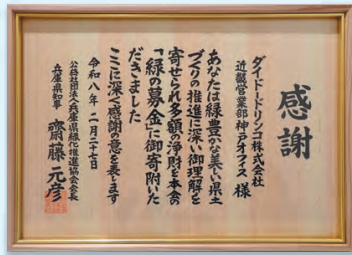 感謝
ダイドードリンコ株式会社
近畿営業部神戸オフィス 様
あなたは緑豊かな美しい県土
づくりの推進に深い御理解を
寄せられ多額の浄財を本会の
「緑の募金」に御寄附いた
だきました
ここに深く感謝の意を表します
令和八年 二月二十七日
公益社団法人兵庫県緑化推進協会会長
兵庫県知事 齋藤元彦